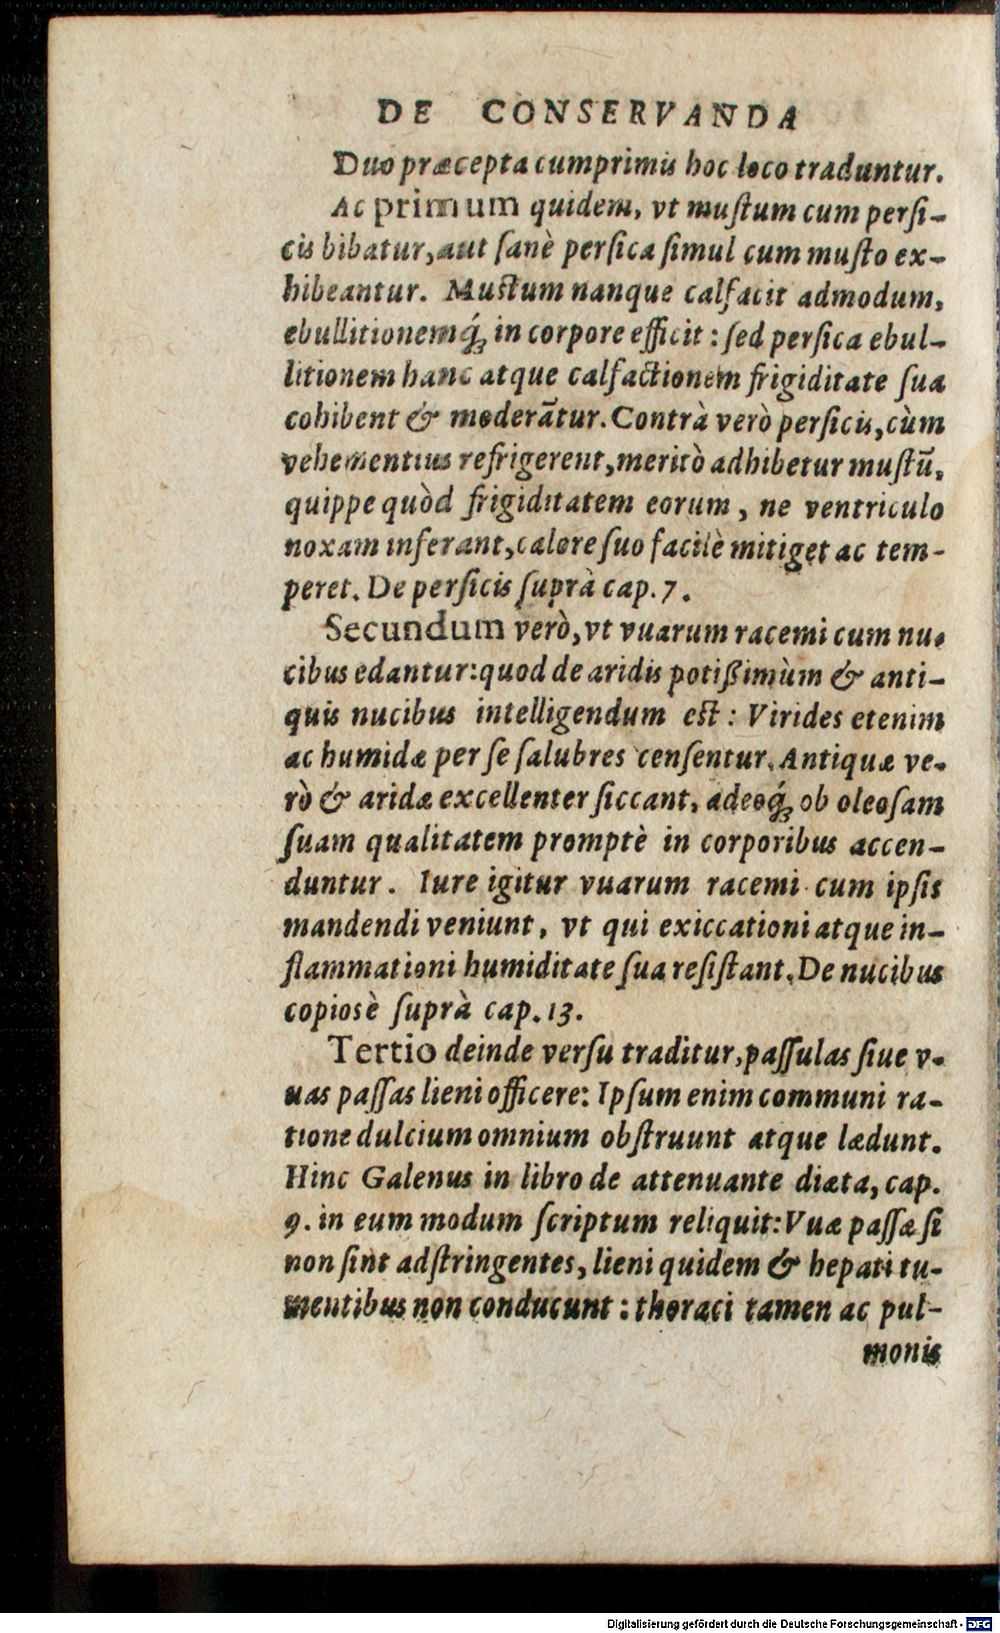 DE CONSERVANDA
Duo præcepta cumprimis hoc loco traduntur.
Ac primum quidem, vt muſtum cum perſi-
cis bibatur, aut ſanè perſica ſimul cum muſto ex-
hibeantur. Muſtum nanque calfacit admodum,
ebullitionemq́ꝫ in corpore efficit : ſed perſica ebul-
litionem hanc atque calfactionem frigiditate ſua
cohibent & moderātur. Contrà verò perſicis, cùm
vehementius refrigerent, meritò adhibetur muſtū,
quippe quòd frigiditatem eorum, ne ventriculo
noxam inferant, calore ſuo facilè mitiget ac tem-
peret. De perſicis ſuprà cap. 7.
Secundum verò, vt vuarum racemi cum nu-
cibus edantur: quod de aridis potißimùm & anti-
quis nucibus intelligendum eſt : Virides etenim
ac humidæ per ſe ſalubres cenſentur. Antiquæ ve-
rò & aridæ excellenter ſiccant, adeoq́ꝫ ob oleoſam
ſuam qualitatem promptè in corporibus accen-
duntur. Iure igitur vuarum racemi cum ipſis
mandendi veniunt, vt qui exiccationi atque in-
flammationi humiditate ſua reſiſtant. De nucibus
copiosè ſuprà cap. 13.
Tertio deinde verſu traditur, paſſulas ſiue v-
uas paſſas lieni officere: Ipſum enim communi ra-
tione dulcium omnium obſtruunt atque lædunt.
Hinc Galenus in libro de attenuante diæta, cap.
9. in eum modum ſcriptum reliquit: Vuæ paſſæ ſi
non ſint adſtringentes, lieni quidem & hepati tu-
mentibus non conducunt : thoraci tamen ac pul-
monis
Digitalisierung gefördert durch die Deutsche Forschungsgemeinschaft - DFG